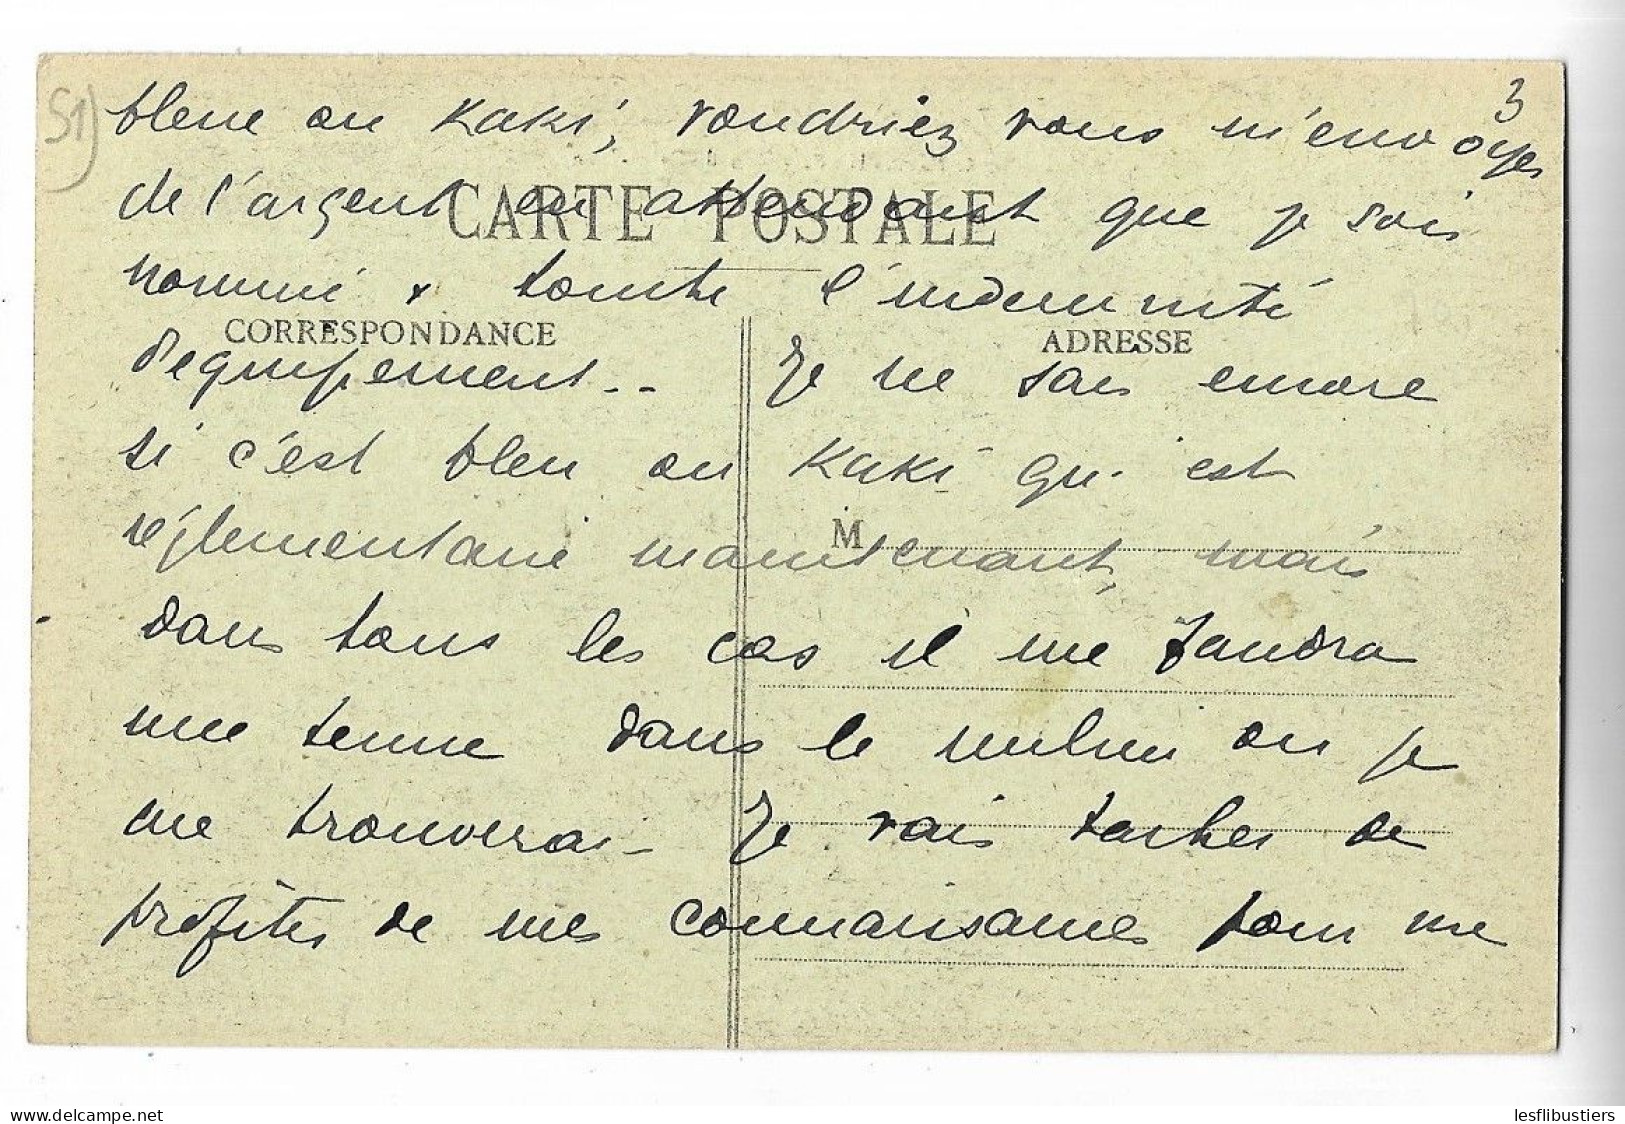 3
51)
bleue ou Kaki, voudriez vous m'envoyer
de l'argent en attendant que je sois
CARTE POSTALE
nommé & touche l'indemnité
CORRESPONDANCE
ADRESSE
d'equipement.. Je ne sais encore
si c'est bleu ou Kaki qui est
réglementaire maintenant, mais
M
dans tous les cas il me faudra
une tenue dans le milieu ou je
me trouverai - Je vais tacher de
profiter de mes connaissances pour me
delcampe.net
lesflibustiers